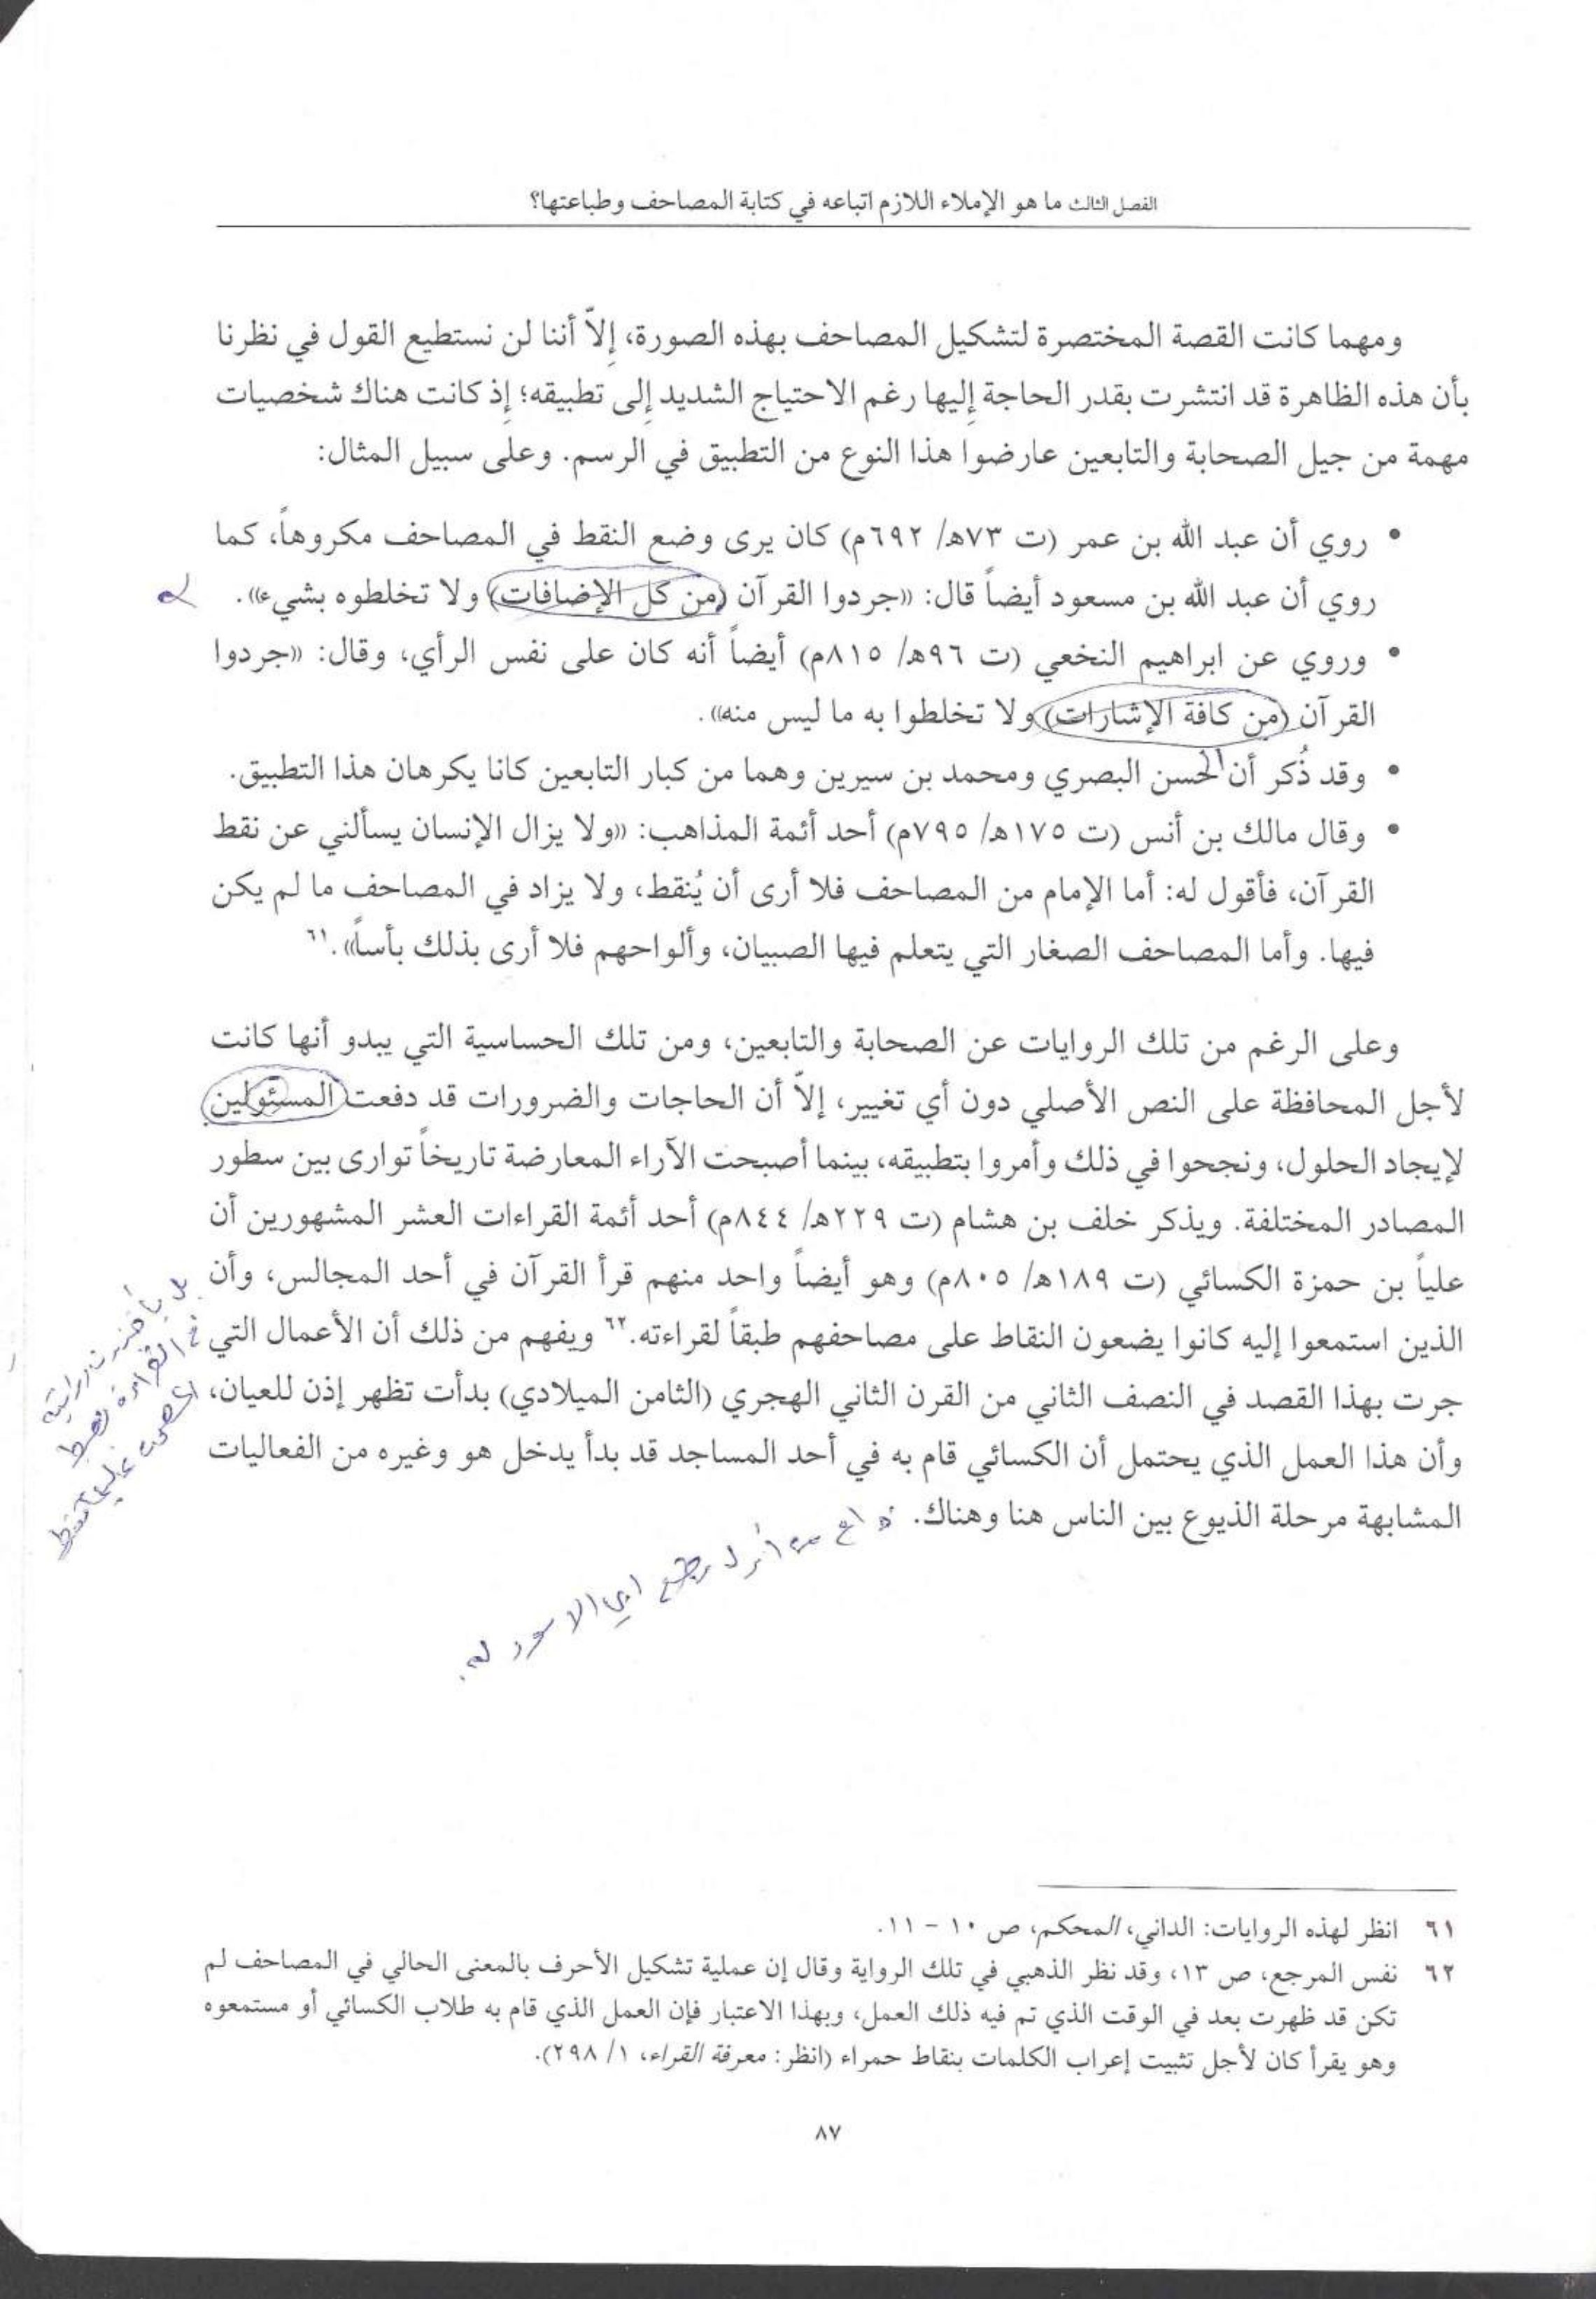 الفصل الثالث ما هو الإملاء اللازم اتباعه في كتابة المصاحف وطباعتها؟
ومهما كانت القصة المختصرة لتشكيل المصاحف بهذه الصورة، إلاّ أننا لن نستطيع القول في نظرنا
بأن هذه الظاهرة قد انتشرت بقدر الحاجة إليها رغم الاحتياج الشديد إلى تطبيقه؛ إذ كانت هناك شخصيات
مهمة من جيل الصحابة والتابعين عارضوا هذا النوع من التطبيق في الرسم. وعلى سبيل المثال:
• روي أن عبد الله بن عمر (ت ٧٣هـ/ ٦٩٢م) كان يرى وضع النقط في المصاحف مكروهاً، كما
روي أن عبد الله بن مسعود أيضاً قال: «جردوا القرآن (من كل الإضافات) ولا تخلطوه بشيء».
• وروي عن ابراهيم النخعي (ت ٩٦هـ/ ٨١٥م) أيضاً أنه كان على نفس الرأي، وقال: «جردوا
القرآن (من كافة الإشارات) ولا تخلطوا به ما ليس منه».
• وقد ذُكر أن الحسن البصري ومحمد بن سيرين وهما من كبار التابعين كانا يكرهان هذا التطبيق.
• وقال مالك بن أنس (ت ١٧٥هـ/ ٧٩٥م) أحد أئمة المذاهب: «ولا يزال الإنسان يسألني عن نقط
القرآن، فأقول له: أما الإمام من المصاحف فلا أرى أن يُنقط، ولا يزاد في المصاحف ما لم يكن
فيها. وأما المصاحف الصغار التي يتعلم فيها الصبيان، وألواحهم فلا أرى بذلك بأساً».٦١
وعلى الرغم من تلك الروايات عن الصحابة والتابعين، ومن تلك الحساسية التي يبدو أنها كانت
لأجل المحافظة على النص الأصلي دون أي تغيير، إلاّ أن الحاجات والضرورات قد دفعت المسئولين
لإيجاد الحلول، ونجحوا في ذلك وأمروا بتطبيقه، بينما أصبحت الآراء المعارضة تاريخاً توارى بين سطور
المصادر المختلفة. ويذكر خلف بن هشام (ت ٢٢٩هـ/ ٨٤٤م) أحد أئمة القراءات العشر المشهورين أن
علياً بن حمزة الكسائي (ت ١٨٩هـ/ ٨٠٥م) وهو أيضاً واحد منهم قرأ القرآن في أحد المجالس، وأن
الذين استمعوا إليه كانوا يضعون النقاط على مصاحفهم طبقاً لقراءته.٦٢ ويفهم من ذلك أن الأعمال التي
جرت بهذا القصد في النصف الثاني من القرن الثاني الهجري (الثامن الميلادي) بدأت تظهر إذن للعيان،
وأن هذا العمل الذي يحتمل أن الكسائي قام به في أحد المساجد قد بدأ يدخل هو وغيره من الفعاليات
المشابهة مرحلة الذيوع بين الناس هنا وهناك.
٦١ انظر لهذه الروايات: الداني، المحكم، ص ١٠ - ١١.
٦٢ نفس المرجع، ص ١٣، وقد نظر الذهبي في تلك الرواية وقال إن عملية تشكيل الأحرف بالمعنى الحالي في المصاحف لم
تكن قد ظهرت بعد في الوقت الذي تم فيه ذلك العمل، وبهذا الاعتبار فإن العمل الذي قام به طلاب الكسائي أو مستمعوه
وهو يقرأ كان لأجل تثبيت إعراب الكلمات بنقاط حمراء (انظر: معرفة القراء، ١/ ٢٩٨).
٨٧